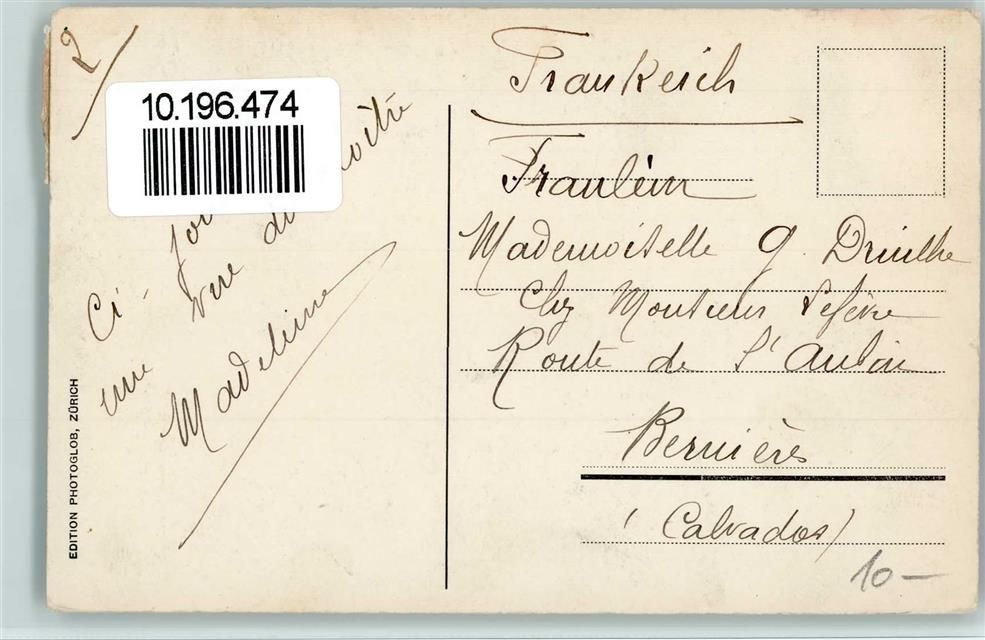 2
10.196.474
Ci-
une vue du
Madeleine
EDITION PHOTOGLOB, ZÜRICH
Frankeich
Fraulein
Mademoiselle G. Druilhe
Chez Monsieur Lefèvre
Route de St Aubin
Bernières
(Calvados)
10 —